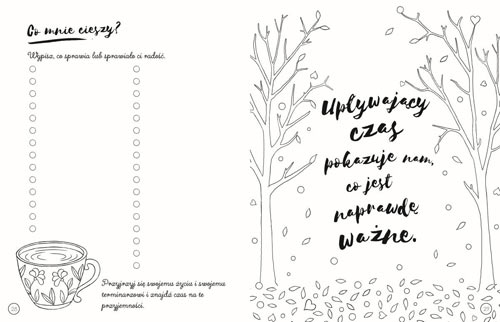 Co mnie cieszy?
Wypisz, co sprawia lub sprawiało ci radość.
Przyjrzyj się swojemu życiu i swojemu
terminarzowi i znajdź czas na te
przyjemności.
28
Upływający
czas
pokazuje nam,
co jest
naprawdę
ważne.